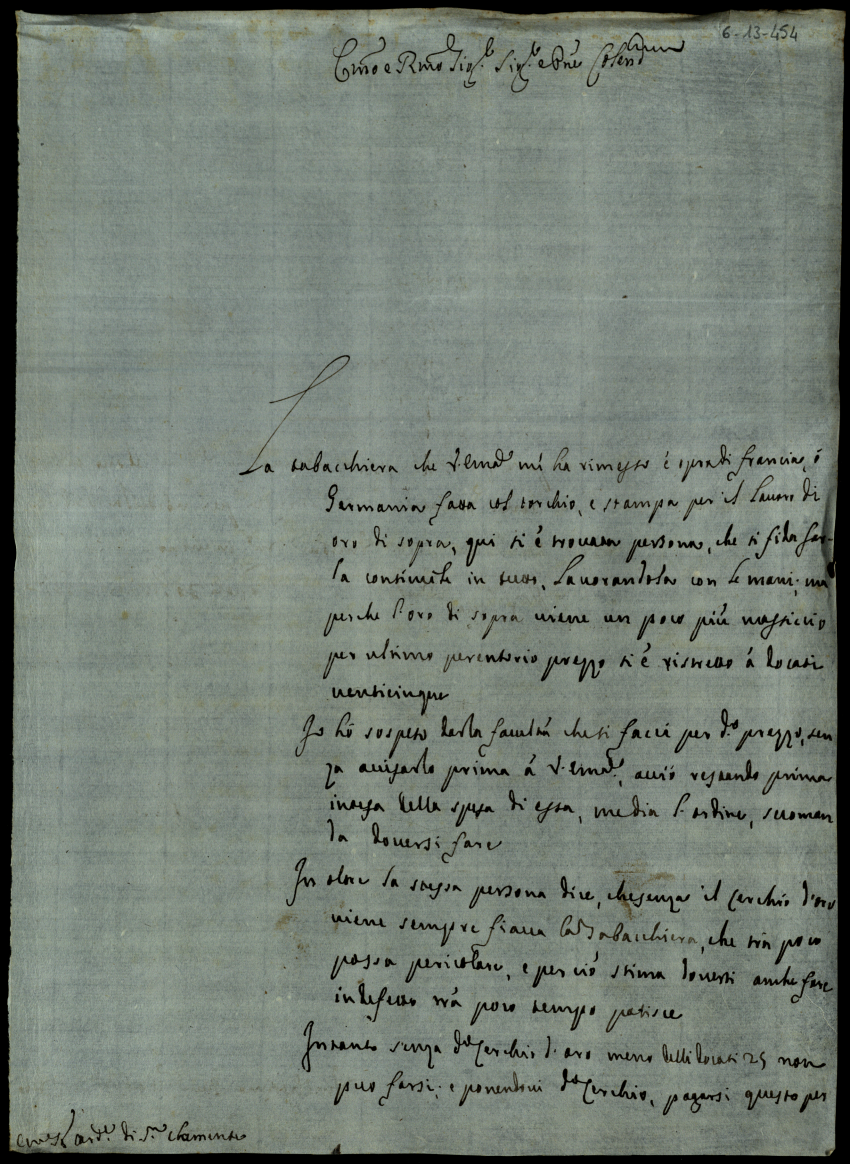 6-13-454
Emo e Rmo Sig.r Sig.r e Pne Colend
La tabacchiera che V. Em.a mi ha rimesso è opra di francia, ò
Germania fatta col torchio, e stampa per il lauoro di
oro di sopra, qui si è trouata persona, che si fida far
la consimile in tutto, lauorandola con le mani; ma
perche l'oro di sopra uiene un poco più massiccio
per ultimo perentorio prezzo si è ristretto à docati
uenticinque
Io hò sospeso darla facultà che si facci per d.o prezzo, sen
za auisarlo prima à V. Em.a, acciò restando prima
intesa della spesa di essa, me dia l'ordine, se coman
da douersi fare
In oltre la stessa persona dice, che senza il cerchio d'oro
uiene sempre fiacca la d.a tabacchiera, che trà poco
possa pericolare, e per ciò stima douersi anche fare
in defetto trà poco tempo patisce
Intanto senza d.o cerchio d'oro meno delli docati 25 non
può farsi; e ponendoui d.o cerchio, pagarsi questo per
Card.e di S.n Clemente